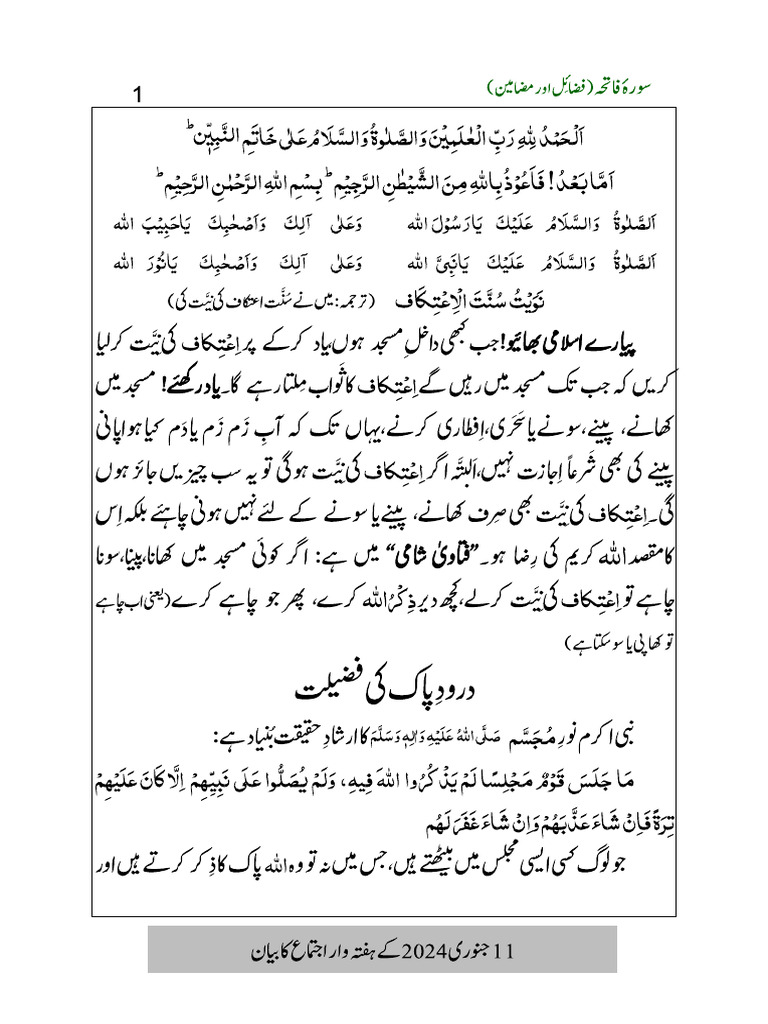 سورۂ فاتحہ (فضائل اور مضامین)
1
اَلْحَمْدُ لِلّٰہِ رَبِّ الْعٰلَمِیْنَ وَالصَّلٰوۃُ وَالسَّلَامُ عَلٰی خَاتَمِ النَّبِیّٖن ؕ
اَمَّا بَعْدُ! فَاَعُوْذُ بِاللّٰہِ مِنَ الشَّیْطٰنِ الرَّجِیْمِ ؕ بِسْمِ اللّٰہِ الرَّحْمٰنِ الرَّحِیْمِ ؕ
اَلصَّلٰوۃُ وَالسَّلَامُ عَلَیْكَ یَارَسُوْلَ اللّٰہ وَعَلٰی آلِكَ وَاَصْحٰبِكَ یَاحَبِیْبَ اللّٰہ
اَلصَّلٰوۃُ وَالسَّلَامُ عَلَیْكَ یَانَبِیَّ اللّٰہ وَعَلٰی آلِكَ وَاَصْحٰبِكَ یَانُوْرَ اللّٰہ
نَوَیْتُ سُنَّتَ الْاِعْتِکَاف (ترجمہ: میں نے سُنَّت اعتکاف کی نِیَّت کی)
پیارے اسلامی بھائیو! جب کبھی داخلِ مسجد ہوں، یاد کر کے پر اِعْتِکاف کی نِیَّت کر لیا
کریں کہ جب تک مسجد میں رہیں گے اِعْتِکاف کا ثَواب مِلتا رہے گا۔ یاد رکھئے! مسجد میں
کھانے، پینے، سونے یا سَحَری، اِفطاری کرنے، یہاں تک کہ آبِ زَم زَم یا دَم کیا ہوا پانی
پینے کی بھی شَرعاً اِجازت نہیں، اَلبتَّہ اگر اِعْتِکاف کی نِیَّت ہوگی تو یہ سب چیزیں جائز ہوں
گی۔ اِعْتِکاف کی نِیَّت بھی صِرف کھانے، پینے یا سونے کے لئے نہیں ہونی چاہئے بلکہ اِس
کا مقصد اللہ کریم کی رِضا ہو۔ ”فتاویٰ شامی“ میں ہے: اگر کوئی مسجد میں کھانا، پینا، سونا
چاہے تو اِعْتِکاف کی نِیَّت کر لے، کچھ دیر ذِکْرُ اللہ کرے، پھر جو چاہے کرے (یعنی اب چاہے
تو کھا پی یا سو سکتا ہے)
درودِ پاک کی فضیلت
نبی اکرم نورِ مُجَسَّم صَلَّی اللہُ عَلَیْہِ وَاٰلِہٖ وَسَلَّمَ کا ارشادِ حقیقت بُنیاد ہے:
مَا جَلَسَ قَوْمٌ مَجْلِسًا لَمْ يَذْكُرُوا اللهَ فِيهِ، وَلَمْ يُصَلُّوا عَلٰى نَبِيِّهِمْ اِلَّا كَانَ عَلَيْهِمْ
تِرَةً فَاِنْ شَاءَ عَذَّبَهُمْ وَاِنْ شَاءَ غَفَرَ لَهُم
جو لوگ کسی ایسی مجلس میں بیٹھتے ہیں، جس میں نہ تو وہ اللہ پاک کا ذِکر کرتے ہیں اور
11 جنوری 2024 کے ہفتہ وار اجتماع کا بیان